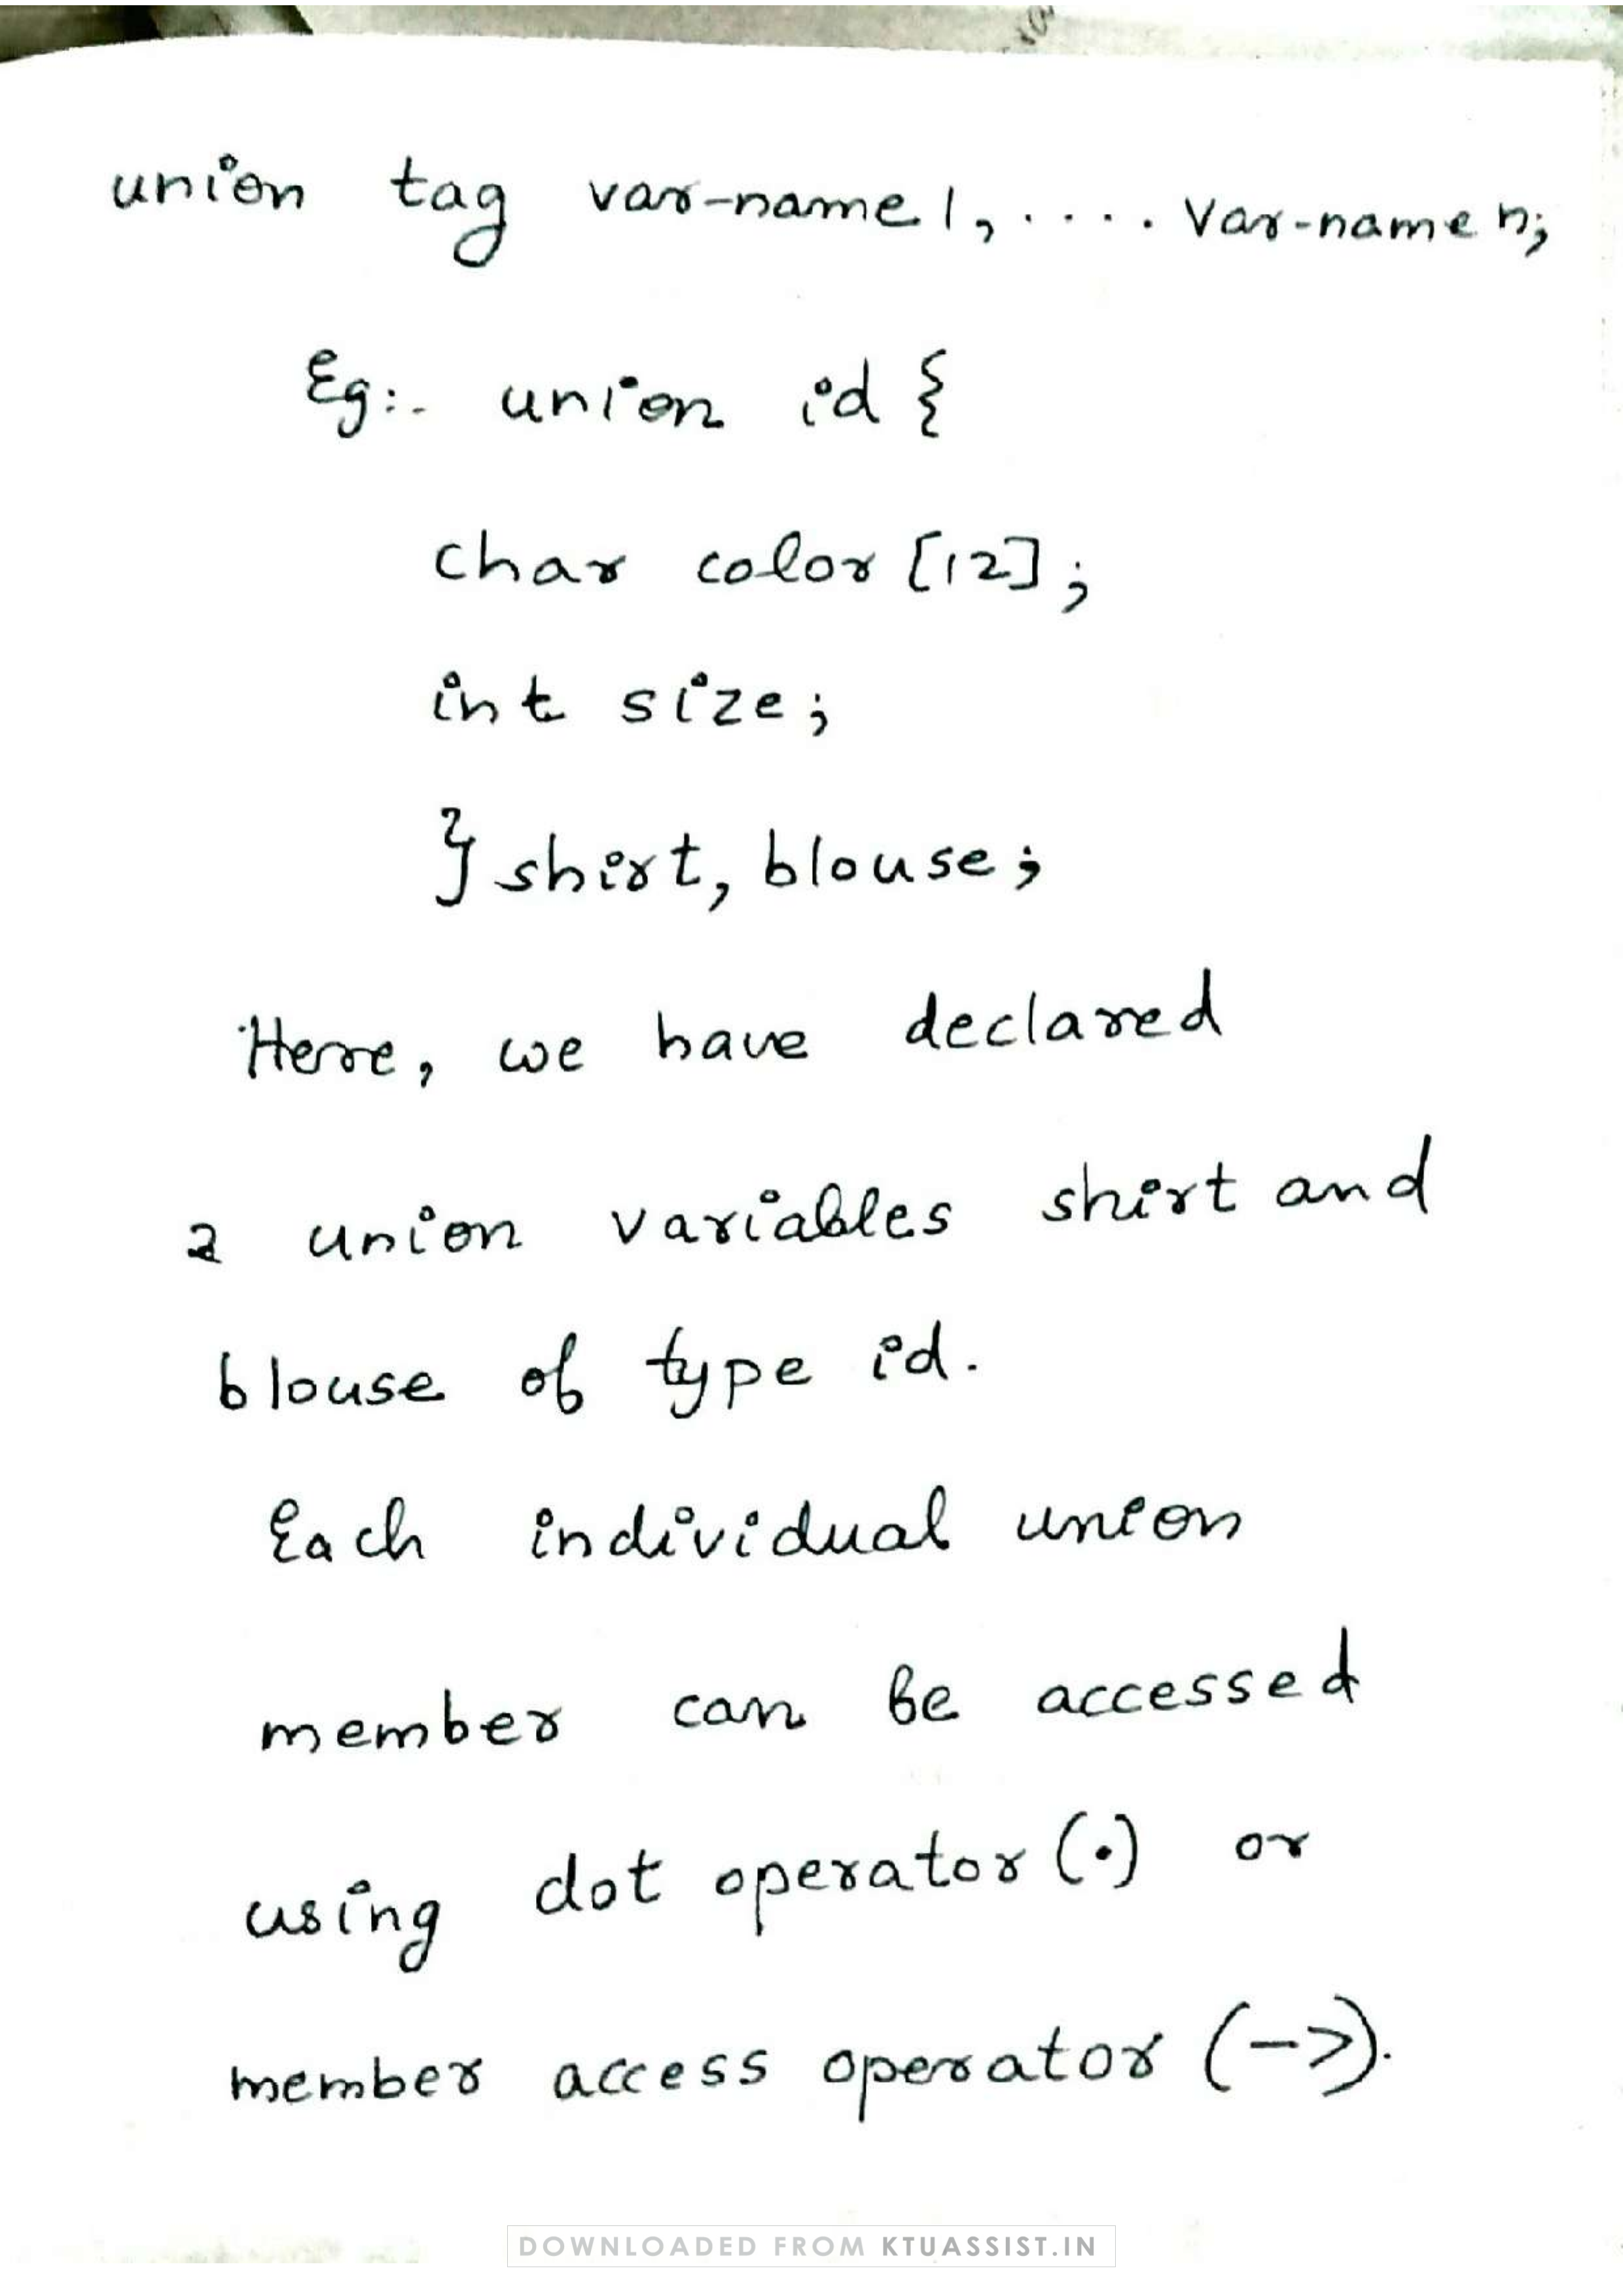 union tag var-name1, .... Var-name n;
Eg:- union id {
char color [12];
int size;
} shirt, blouse;
Here, we have declared
2 union variables shirt and
blouse of type id.
Each individual union
member can be accessed
using dot operator (.) or
member access operator (->).
DOWNLOADED FROM KTUASSIST.IN